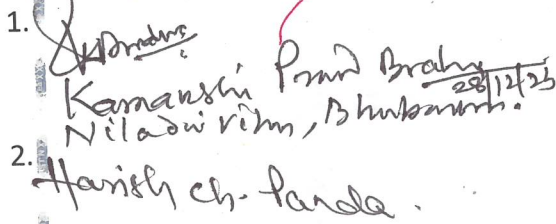 1.
Kamakshi Prasad Brahma
28/12/23
Niladri Vihar, Bhubaneswar.
2.
Harish Ch. Panda.